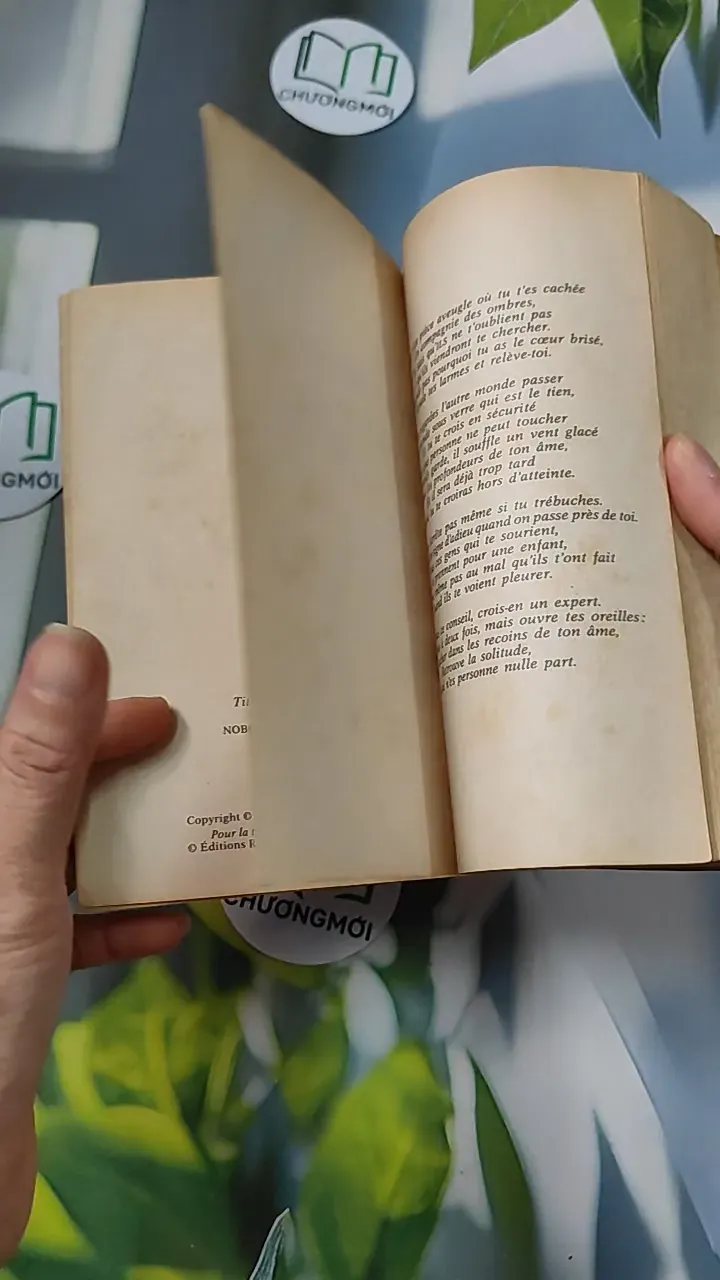 CHƯƠNGMỚI
GMỚI
NOB
Copyright ©
Pour la
© Éditions
CHƯƠNGMỚI
aveugle où tu t'es cachée
compagnie des ombres,
qu'ils ne t'oublient pas
viendront te chercher.
pas pourquoi tu as le cœur brisé,
tes larmes et relève-toi.
l'autre monde passer
sous verre qui est le tien,
te crois en sécurité
personne ne peut toucher
garde, il souffle un vent glacé
profondeurs de ton âme,
il sera déjà trop tard
te croiras hors d'atteinte.
pas même si tu trébuches.
d'adieu quand on passe près de toi.
gens qui te sourient,
prennent pour une enfant,
même pas au mal qu'ils t'ont fait
ils te voient pleurer.
conseil, crois-en un expert.
deux fois, mais ouvre tes oreilles:
dans les recoins de ton âme,
la solitude,
personne nulle part.